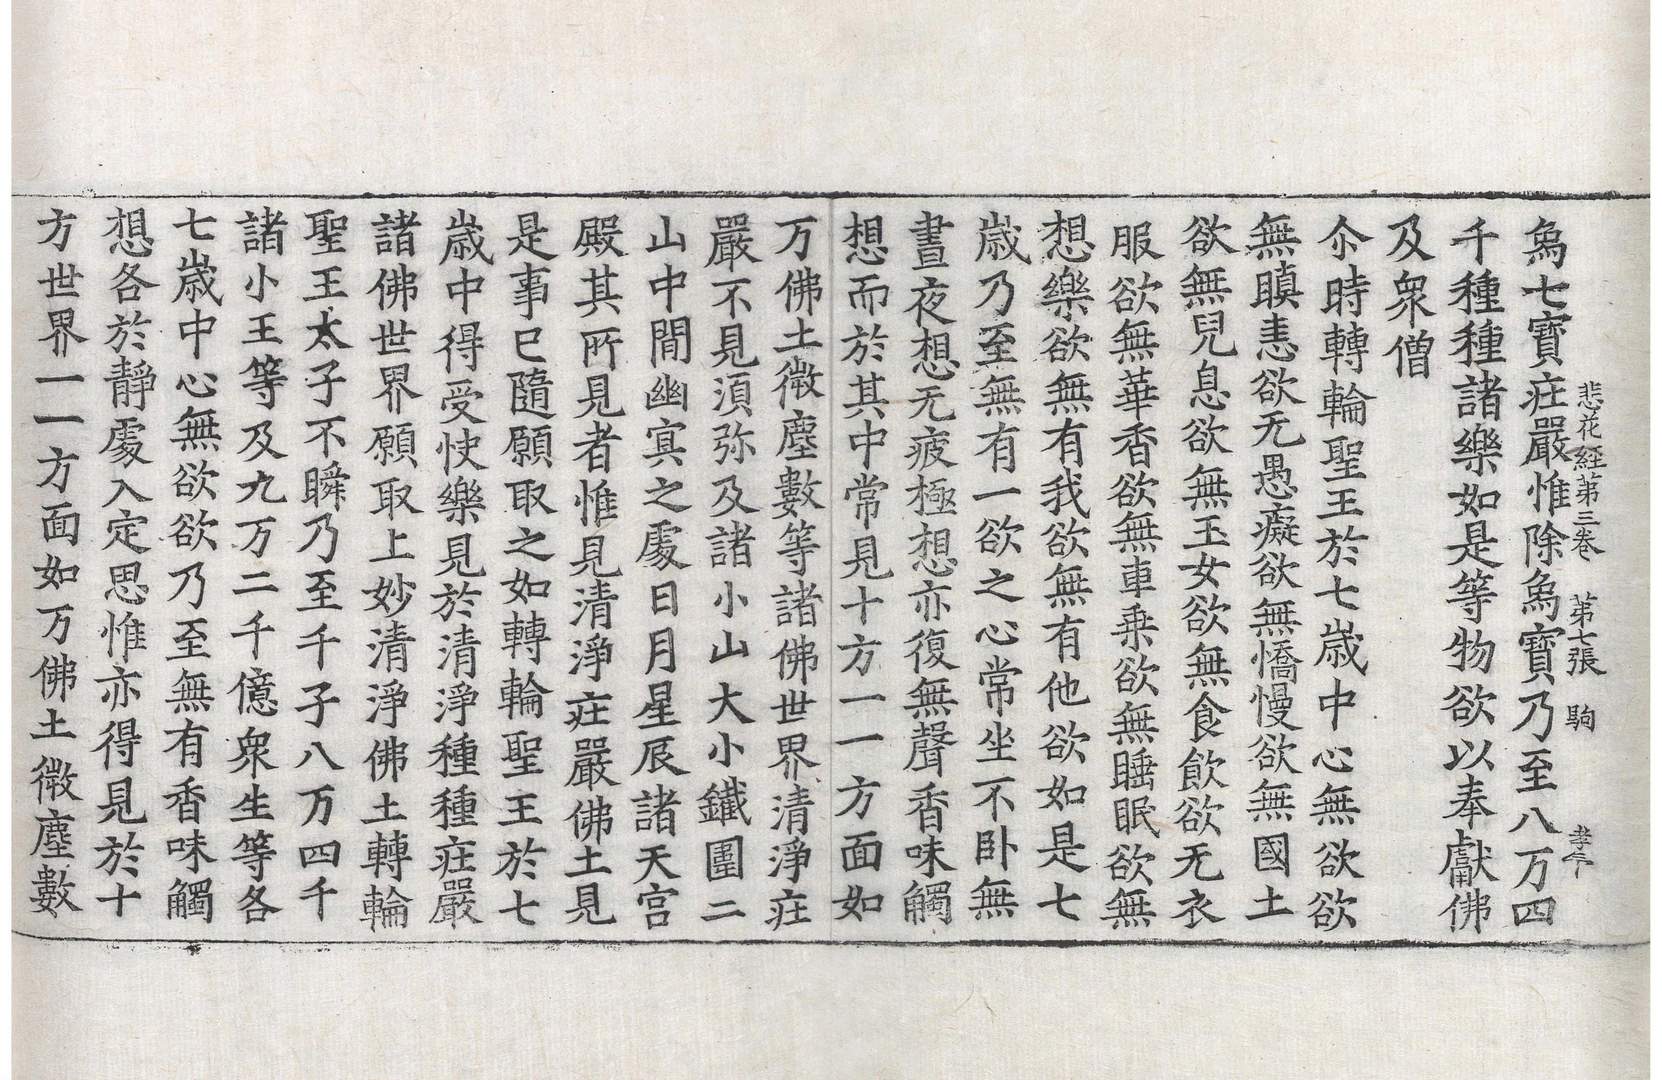 悲花經第三卷 第七張 駒 孝午
爲七寶莊嚴惟除爲寶乃至八万四
千種種諸樂如是等物欲以奉獻佛
及衆僧
尒時轉輪聖王於七歲中心無欲欲
無瞋恚欲无愚癡欲無憍慢欲無國土
欲無兒息欲無玉女欲無食飲欲无衣
服欲無華香欲無車乗欲無睡眠欲無
想樂欲無有我欲無有他欲如是七
歲乃至無有一欲之心常坐不卧無
晝夜想无疲極想亦復無聲香味觸
想而於其中常見十方一一方面如
万佛土微塵數等諸佛世界清淨莊
嚴不見須弥及諸小山大小鐵圍二
山中間幽冥之處日月星辰諸天宫
殿其所見者惟見清淨莊嚴佛土見
是事已隨願取之如轉輪聖王於七
歲中得受快樂見於清淨種種莊嚴
諸佛世界願取上妙清淨佛土轉輪
聖王太子不瞬乃至千子八万四千
諸小王等及九万二千億衆生等各
七歲中心無欲欲乃至無有香味觸
想各於靜處入定思惟亦得見於十
方世界一一方面如万佛土微塵數